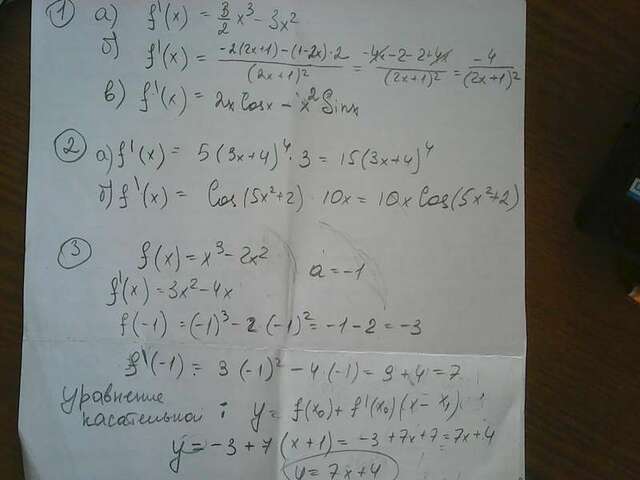 ① а) f'(x) = 3/2 x³ - 3x²
б) f'(x) = (-2(2x+1) - (1-2x)·2)/(2x+1)² = (-4x - 2 - 2 + 4x)/(2x+1)² = -4/(2x+1)²
в) f'(x) = 2x Cosx - x² Sinx
② а) f'(x) = 5(3x+4)⁴·3 = 15(3x+4)⁴
б) f'(x) = Cos(5x²+2) 10x = 10x Cos(5x²+2)
③ f(x) = x³ - 2x² a = -1
f'(x) = 3x² - 4x
f(-1) = (-1)³ - 2(-1)² = -1 - 2 = -3
f'(-1) = 3(-1)² - 4·(-1) = 3 + 4 = 7
уравнение
касательной : y = f(x₀) + f'(x₀)(x - x₁)
y = -3 + 7(x+1) = -3 + 7x + 7 = 7x + 4
y = 7x + 4